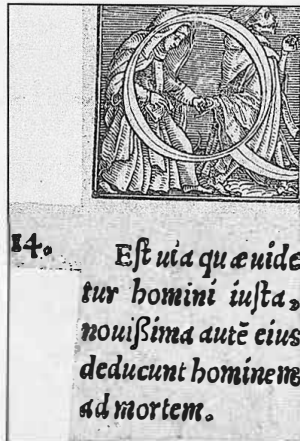 Q
14.
Eſt uia quæ uide
tur homini iuſta,
nouiſsima autē eius
deducunt hominem
ad mortem.